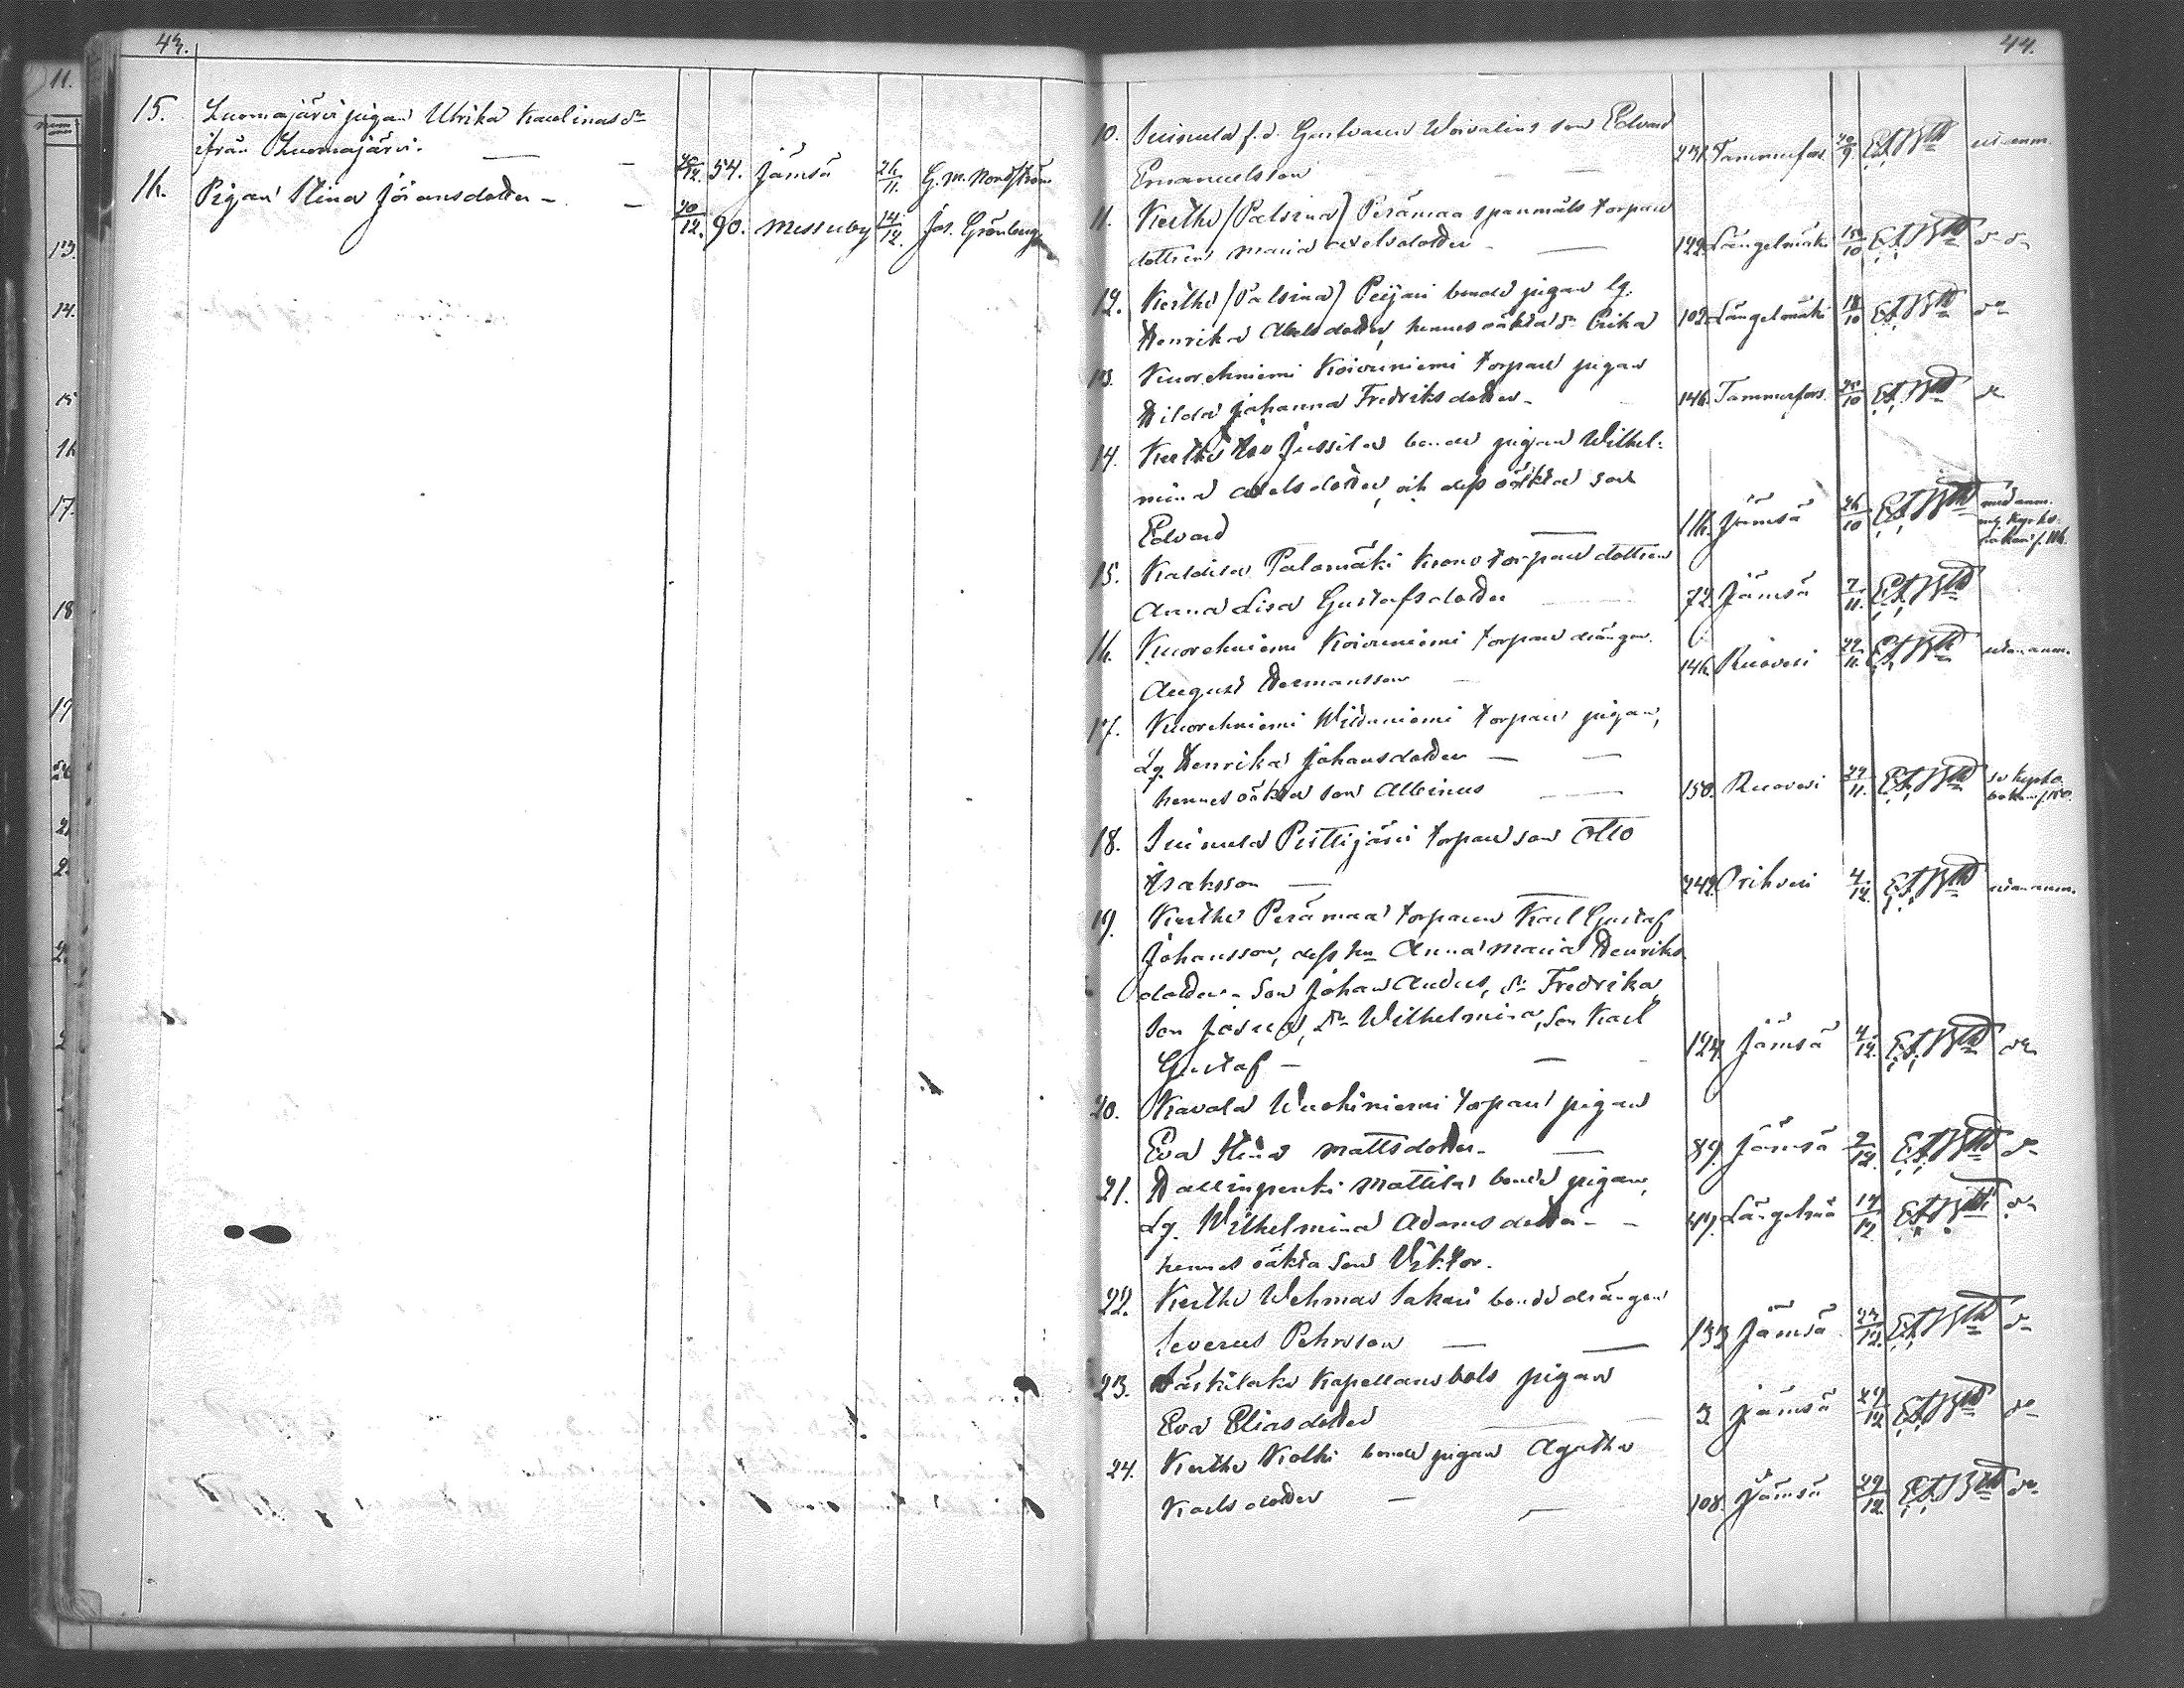 43.
15. Luomajärvi pigan Ulrika Karlinas dr
ifrån Luomajärvi. — — 20/12. 54. Jämsä 26/11. G. M. Nordström
16. Pigan Stina Jöransdotter — — 20/12. 90. Messuby 14/12. Jos. Grönberg
11.
13.
14.
15
16
17.
18
19
44.
10. Suinula f.d. Gustavus son Edvard
Emanuelsson 231. Tammerfors 20/9 utan anm.
11. Kertte (Palsina) Perämaa spanmåls torpare
dottren Maria Axelsdotter — 122. Längelmäki 10 do do
12. Kertte (Palsina) Peijari bonde pigan lg.
Henrika Abelsdotter, hennes oäkta dr Erika 102. Längelmäki 18/10 do
13. Kuorehniemi Koivuniemi torpare pigan
Hilda Johanna Fredriksdotter — 146. Tammerfors 25/10 do
14. Kertte Jussila bonde pigan Wilhel-
mina Axelsdotter, och dess oäkta son
Edvard — 116. Jämsä 26/10 med anm.
15. Kaldila Palomäki krono torpare dottren
Anna Lisa Gustafsdotter — 72. Jämsä 7/11.
16. Kuorehniemi Koivuniemi torpare drängen
August Hermansson — 146. Ruovesi 22/11. utan anm.
17. Kuorehniemi torpare pigan,
Lg. Henrika Johansdotter — —
hennes oäkta son Albinus — 150. Ruovesi 11. se kyrko-
18. Suinula Pittijärvi torpare son Otto
Isaksson — 242. Orihvesi 4/12. utan anm.
19. Kertte Perämaa torparen Karl Gustaf
Johansson, dess hu Anna Maria Henriks
dotter — son Johan, dr Fredrika,
son Josua, dr Wilhelmina, son Karl
Gustaf — — 124. Jämsä 4/12. do
20. Kavala Wuohiniemi torpare pigan
Eva Stina Mattsdotter — 89. Jämsä 9/12. do
21. Hallinpenki Mattila bonde pigan,
Lg. Wilhelmina Adamsdotter — — 49. Längelmä 12 do
hennes oäkta son Viktor.
22. Kertte Wehmas Sakari bonde drängen
Severus Pehrsson — — 133 Jämsä 23/12. do
23. Särkilaks Kapellansbols pigan
Eva Eliasdotter — 3 Jämsä 29/12 do
24. Kertte Kolhi bonde pigan Agatha
Karlsdotter — — 108. Jämsä 29/12. do